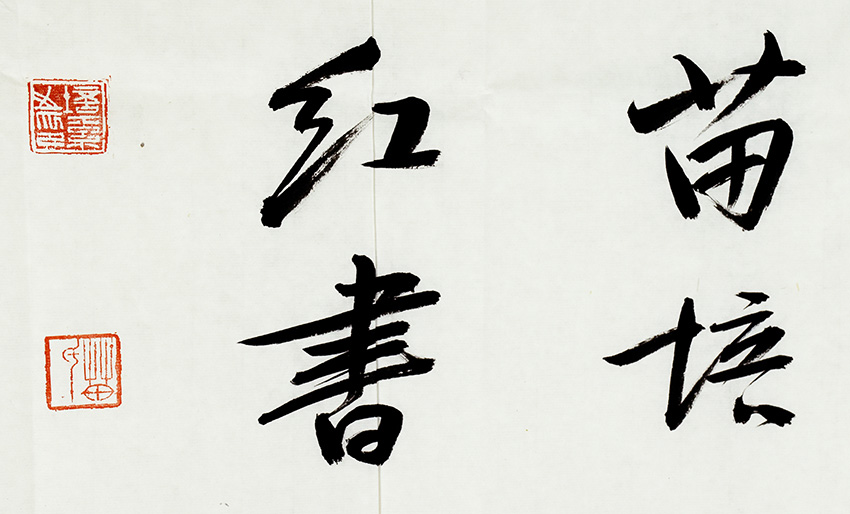 苗培
红書